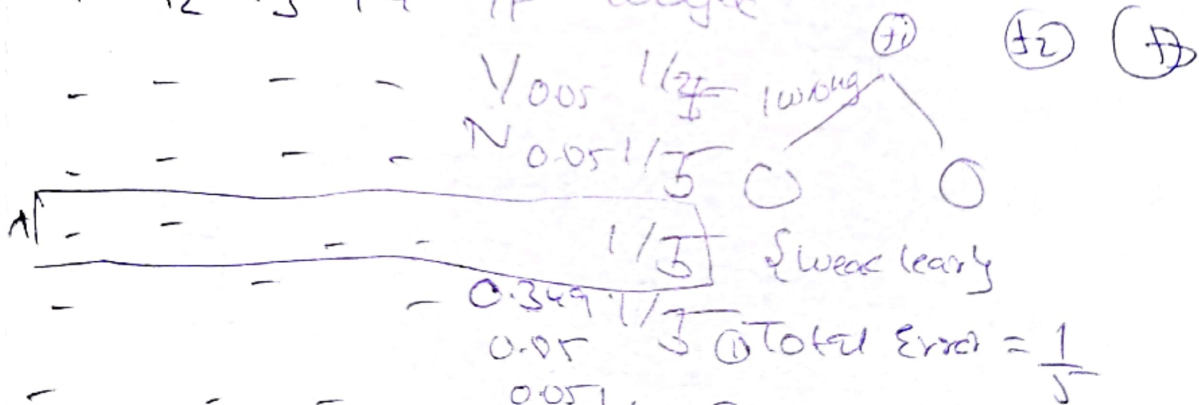 f1 f2 f3
Y 0.05 1/5 1 wrong
N 0.05 1/5
1/5 {weak learn}
0.349 1/5
0.05 ① Total Error = 1/5
0.05